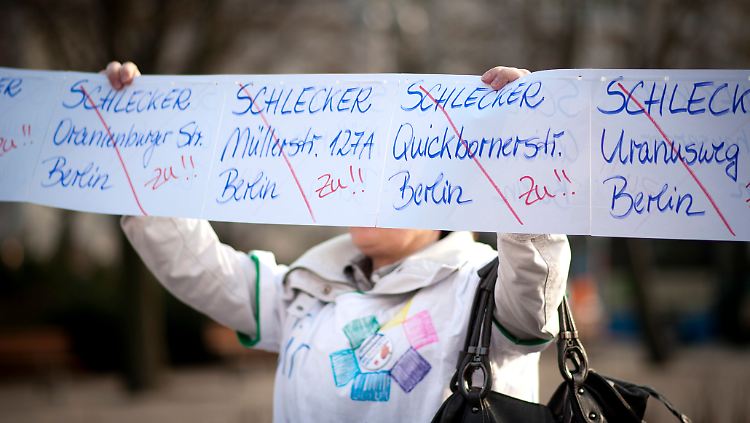 SCHLECKER
Oranienburger Str.
Berlin zu!!
SCHLECKER
Müllerstr. 127A
Berlin zu!!
SCHLECKER
Quickbornerstr.
Berlin zu!!
SCHLECK
Uranusweg
Berlin